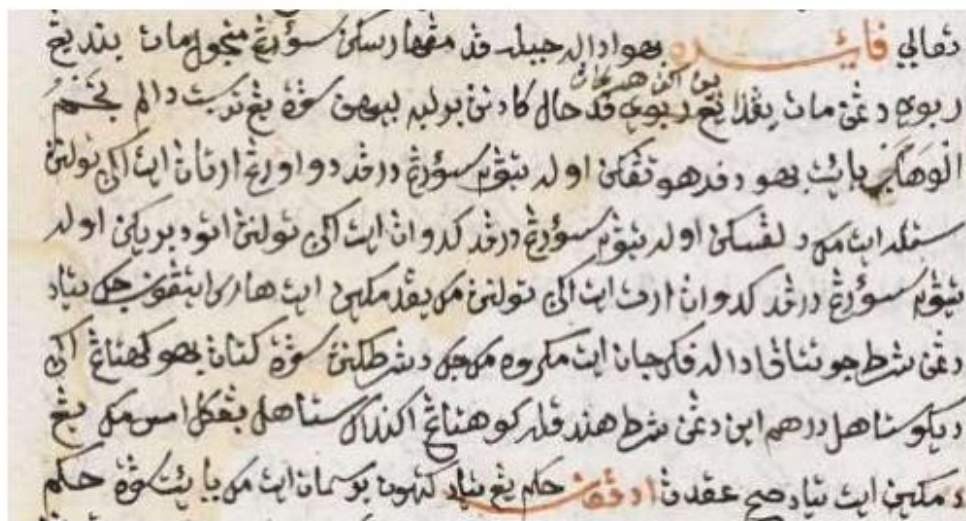 تعالي فائده بهوا داله حيله فد مڠهارسكن سؤرڠ منجول مات بندا يڠ
ربوي دڠن مات بندا يڠ ربوي فد حال كادئن بوليه لبيهن سڤرة يڠ ترسبت دالم نجم
الوهاج يائيت بهو دفرهوتڠكن اوله تيڤ٢ سؤرڠ درڤد دوا اورڠ ارتاڽ ايت اكن تولنڽ
ستله ايت مك دلڤسكن اوله تيڤ٢ سؤرڠ درڤد كدوان ايت اكن تولنڽ اتو دبريكن اوله
تيڤ٢ سؤرڠ درڤد كدوان ارت ايت اكن تولنڽ مك يڠد مكين ايت هارس ايتڤون جك تياد
دڠن شرط جو تتاڤي اداله فكرجان ايت مكروه مك جك دشرطكنڽ سڤرة كتاڽ بهو كهوتاڠ اكن
ديكو ساتهل درهم اين دڠن شرط هندقله كو هوتاڠ اكنداك ساتهل بڠكل امس مك يڠ
دمكين ايت تياد صح عقدڽ ادڤون حكم يڠ تياد كتهون ايت مك يائت سڤرة حكم